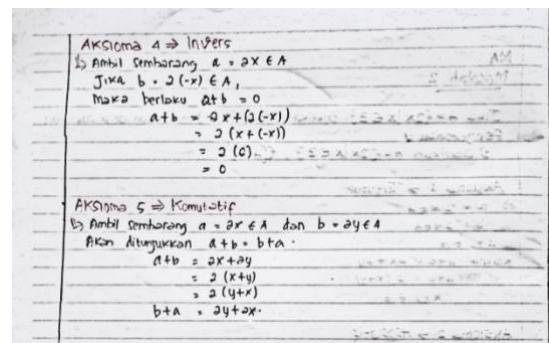 Aksioma 4 ⇒ Invers
↳ Ambil sembarang a = 2x ∈ A
Jika b = 2(-x) ∈ A,
maka berlaku a+b = 0
a+b = 2x+(2(-x))
= 2 (x+(-x))
= 2 (0)
= 0
Aksioma 5 ⇒ Komutatif
↳ Ambil sembarang a = 2x ∈ A dan b = 2y ∈ A
Akan ditunjukkan a+b = b+a.
a+b = 2x+2y
= 2 (x+y)
= 2 (y+x)
b+a = 2y+2x.